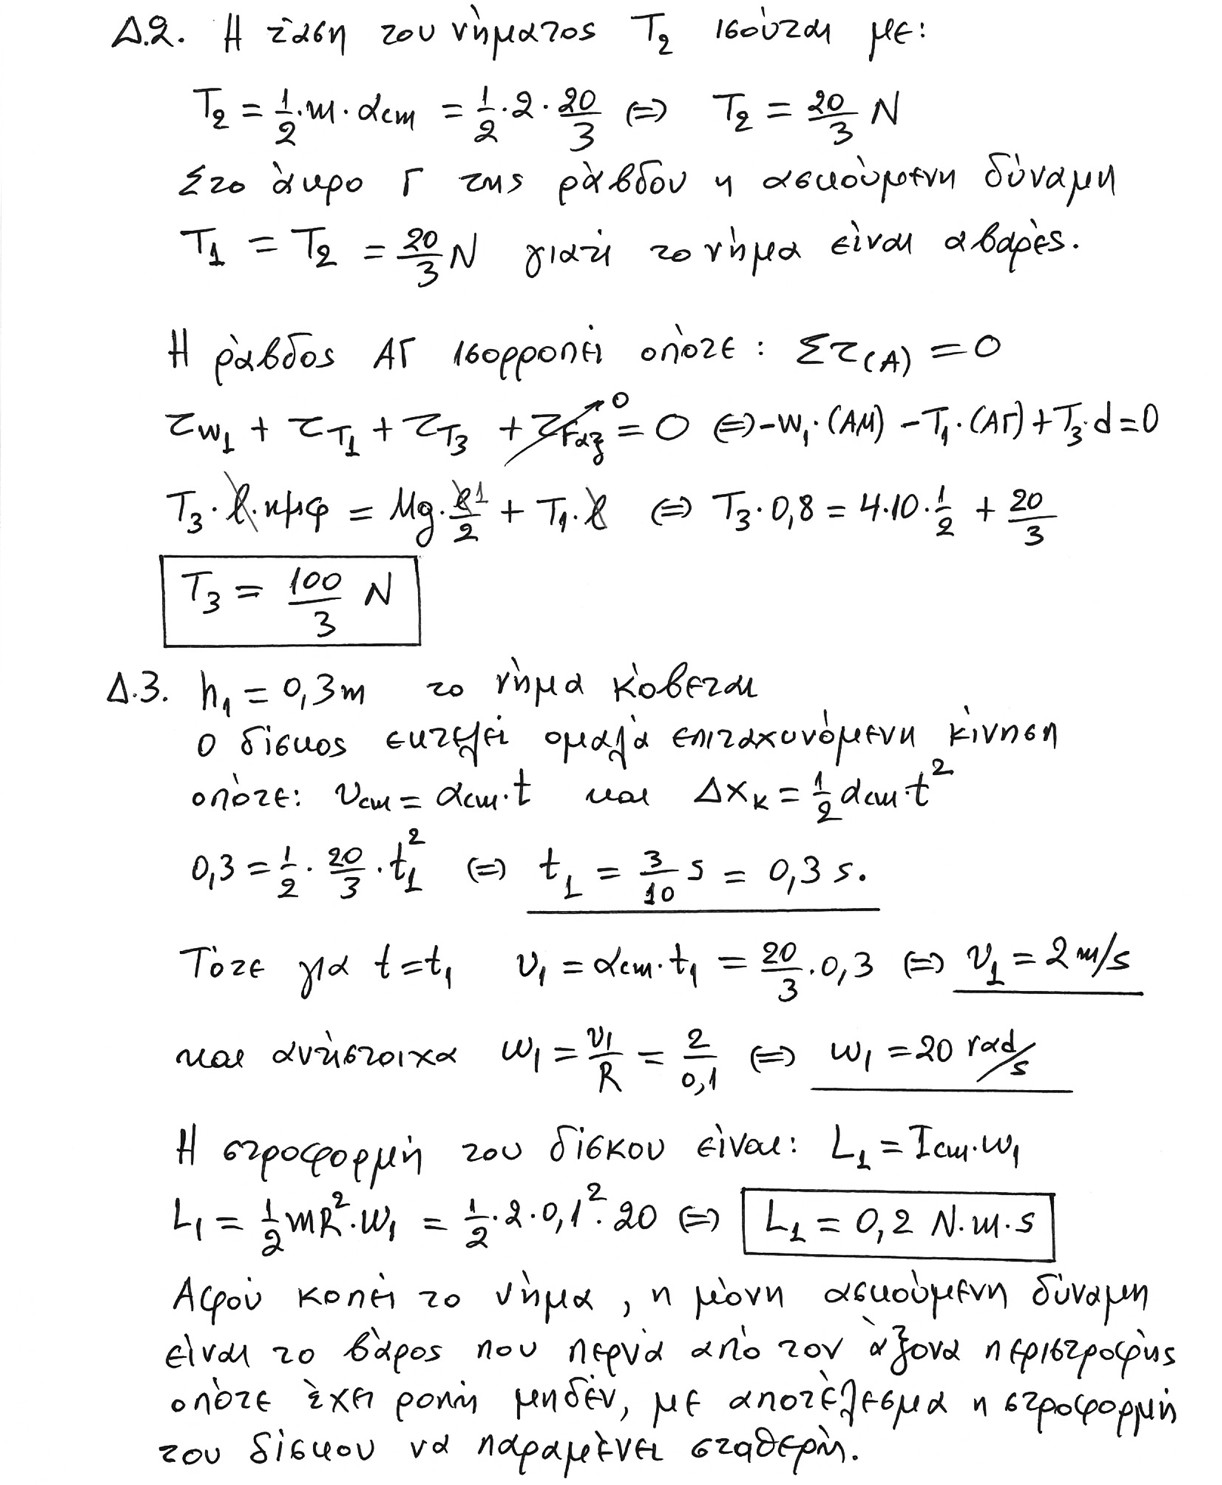 Δ.2. Η τάση του νήματος T₂ ισούται με:
T₂ = 1/2·m·αcm = 1/2·2·20/3 ⇔ T₂ = 20/3 N
Στο άκρο Γ της ράβδου η ασκούμενη δύναμη
T₁ = T₂ = 20/3 N γιατί το νήμα είναι αβαρές.
Η ράβδος ΑΓ ισορροπεί οπότε: Στ(Α) = 0
τw₁ + τT₁ + τT₃ + τFαξ → 0 = 0 ⇔ -w₁·(ΑΜ) - T₁·(ΑΓ) + T₃·d = 0
T₃·ℓ·ημφ = Mg·ℓ¹/2 + T₁·ℓ ⇔ T₃·0,8 = 4·10·1/2 + 20/3
T₃ = 100/3 N
Δ.3. h₁ = 0,3m το νήμα κόβεται
Ο δίσκος εκτελεί ομαλά επιταχυνόμενη κίνηση
οπότε: υcm = αcm·t και ΔΧκ = 1/2 αcm·t²
0,3 = 1/2·20/3·t₁² ⇔ t₁ = 3/10 s = 0,3 s.
Τότε για t=t₁ υ₁ = αcm·t₁ = 20/3·0,3 ⇔ υ₁ = 2 m/s
και αντίστοιχα ω₁ = υ₁/R = 2/0,1 ⇔ ω₁ = 20 rad/s
Η στροφορμή του δίσκου είναι: L₁ = Icm·ω₁
L₁ = 1/2 mR²·ω₁ = 1/2·2·0,1²·20 ⇔ L₁ = 0,2 N·m·s
Αφού κοπεί το νήμα, η μόνη ασκούμενη δύναμη
είναι το βάρος που περνά από τον άξονα περιστροφής
οπότε έχει ροπή μηδέν, με αποτέλεσμα η στροφορμή
του δίσκου να παραμένει σταθερή.